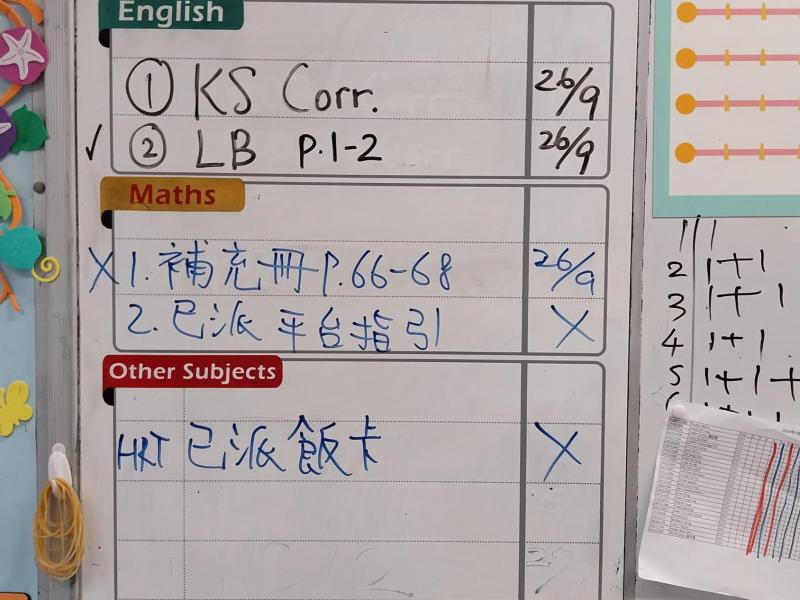 English
① KS Corr. 26/9
✓ ② LB P.1-2 26/9
Maths
X 1. 補充冊 P.66-68 26/9
2. 已派平台指引 X
Other Subjects
HRT 已派飯卡 X
1 1
2 1+1
3 1+1
4 1+1
5 1+1+